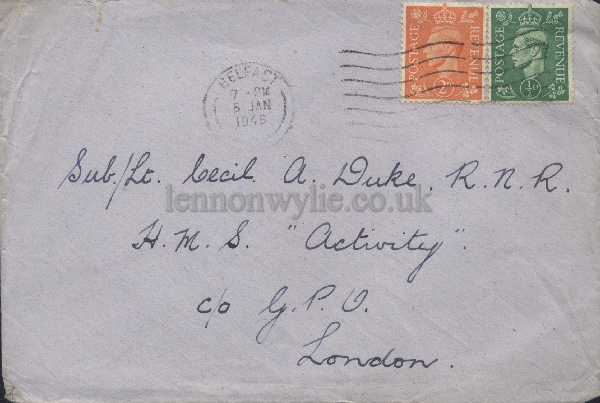 POSTAGE REVENUE 2D
POSTAGE REVENUE ½D
BELFAST
7 - PM
5 JAN
1946
Sub/Lt. Cecil A. Duke, R.N.R.
lennonwylie.co.uk
H.M.S. "Activity".
c/o G.P.O.
London.